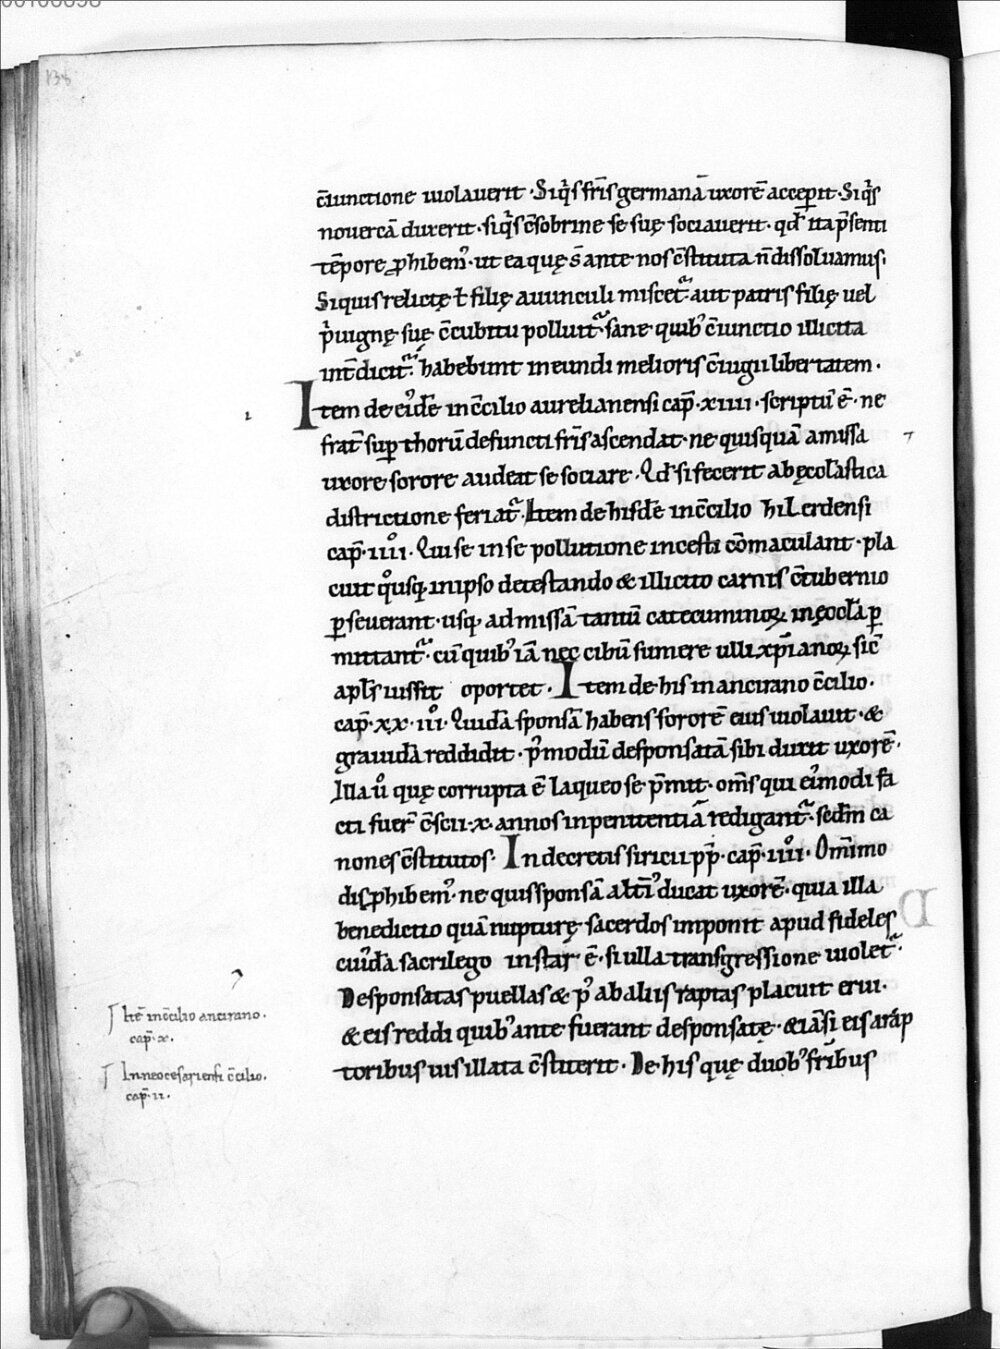 c̄iunctione uiolauerit · Siq̇s fr̄is germanā uxorē accep̄it · Siq̇s
nouercā duxerit · siq̇s c̄sobrine se suę sociauerit · qd̄ ita p̄senti
tēpore ꝓhibem᾽ · ut ea quę s̄ ante nos c̄stituta n̄ dissoluamus ·
Si quis relictę ł filię auunculi miscet᷑ · aut patris filię uel
ṗuignę suę c̄cubitu polluit᷑ · sane quib᾽ c̄iunctio illicita
int̄dicit᷑ · habebunt ineundi melioris c̄iugii libertatem ·
Item de ei᾽dē in c̄cilio aurelianensi cap̄ · xiiii · scriptū ē · ne
frat̄ suꝑ thorū defuncti fr̄is ascendat · ne quisquā amissa
uxore sorore audeat se sociare · Qd̄ si fecerit ab ęccl̄astica
districtione feriat᷑ · Item de hisdē in c̄cilio hiLerdensi
cap̄ · iiii° · Qui se inse pollutione incesti cōmaculant · pla
cuit q°usq; in ipso detestando & illicito carnis c̄tubernio
ꝑseuerant · usq; ad missā tantū catecuminoꝝ in ęccl̄a ꝑ
mittant᷑ · cū quib᾽ iā nec cibū sumere ulli xp̄ianoꝝ sic̄
apl̄s iussit oportet · Item de his in ancirano c̄cilio ·
cap̄ · xx · iii° · Quidā sponsā habens sororē eius uiolauit · &
grauidā reddidit · p᾽modū desponsatā sibi duxit uxorē ·
Illa ů quę corrupta ē laqueo se p̄mit · om̄s qui ei᾽modi fa
cti fuer̄ c̄scii · x · annos in penitentiā redigant᷑ · sedm̄ ca
nones c̄stitutos · In decretis siricii pp̄ · cap̄ · iiii° · Om̄imo
dis ꝓhibem᾽ · ne quis sponsā alt̄i᾽ ducat uxorē · quia illa
benedictio quā nupturę sacerdos imponit apud fideles
cui᾽dā sacrilego instar ē · si ulla transgressione uiolet᷑ ·
Desponsatas puellas & p᾽ ab aliis raptas placuit erui ·
& eis reddi quib᾽ ante fuerant desponsatę · & iāsi eis a rap
toribus uis illata c̄stiterit · De his quę duob᾽ fr̄ibus
Itē in c̄cilio ancirano ·
cap̄ · x ·
In neocesariensi c̄cilio ·
cap̄ · ii ·